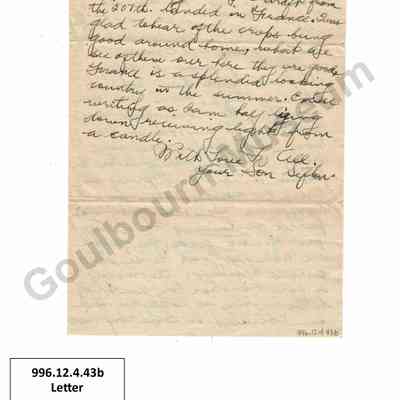 the 207th. landed in France. Am
glad to hear of the crops being
good around home, what we
see of them over here they are good
France is a splendid looking
country in the summer. Excuse
writing as I am half lying
down, receiving light from
a candle.
With Love to All.
Your Son
Goulbourn Museum
996.12.4.43b
996.12.4.43b
Letter